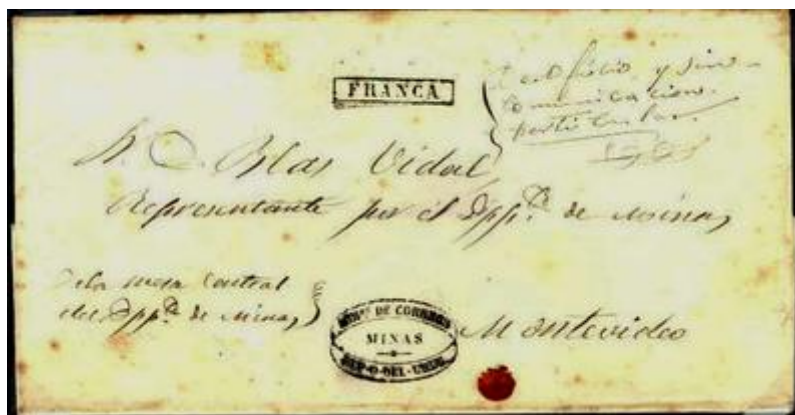 FRANCA
y sin
comunicacion
particular.
S. D. Blas Vidal
Representante por el Dpp.to de Minas
De la mesa central
del Dpp.to de Minas
DE CORREOS
MINAS
Montevideo